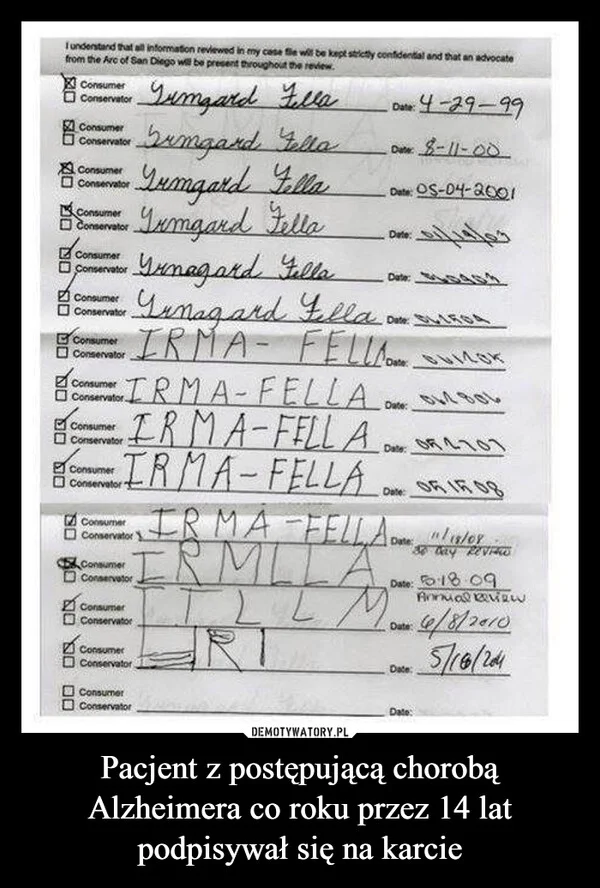 I understand that all information reviewed in my case file will be kept strictly confidential and that an advocate
from the Arc of San Diego will be present throughout the review.
Consumer
Conservator Yrmgard Fella Date: 4-29-99
Consumer
Conservator Yrmgard Fella Date: 8-11-00
Consumer
Conservator Yrmgard Fella Date: 05-04-2001
Consumer
Conservator Yrmgard Fella Date:
Consumer
Conservator Yrmagard Fella Date:
Consumer
Conservator Yrmagard Fella Date:
Consumer
Conservator IRMA- FELLA Date:
Consumer
Conservator IRMA-FELLA Date:
Consumer
Conservator IRMA-FELLA Date:
Consumer
Conservator IRMA-FELLA Date:
Consumer
Conservator IRMA-FELLA Date: 11/18/08
30 day REVIEW
Consumer
Conservator IRMLLA Date: 5·18·09
Annual Review
Consumer
Conservator ILLM Date: 6/8/2010
Consumer
Conservator Date:
Consumer
Conservator Date:
DEMOTYWATORY.PL
Pacjent z postępującą chorobą
Alzheimera co roku przez 14 lat
podpisywał się na karcie